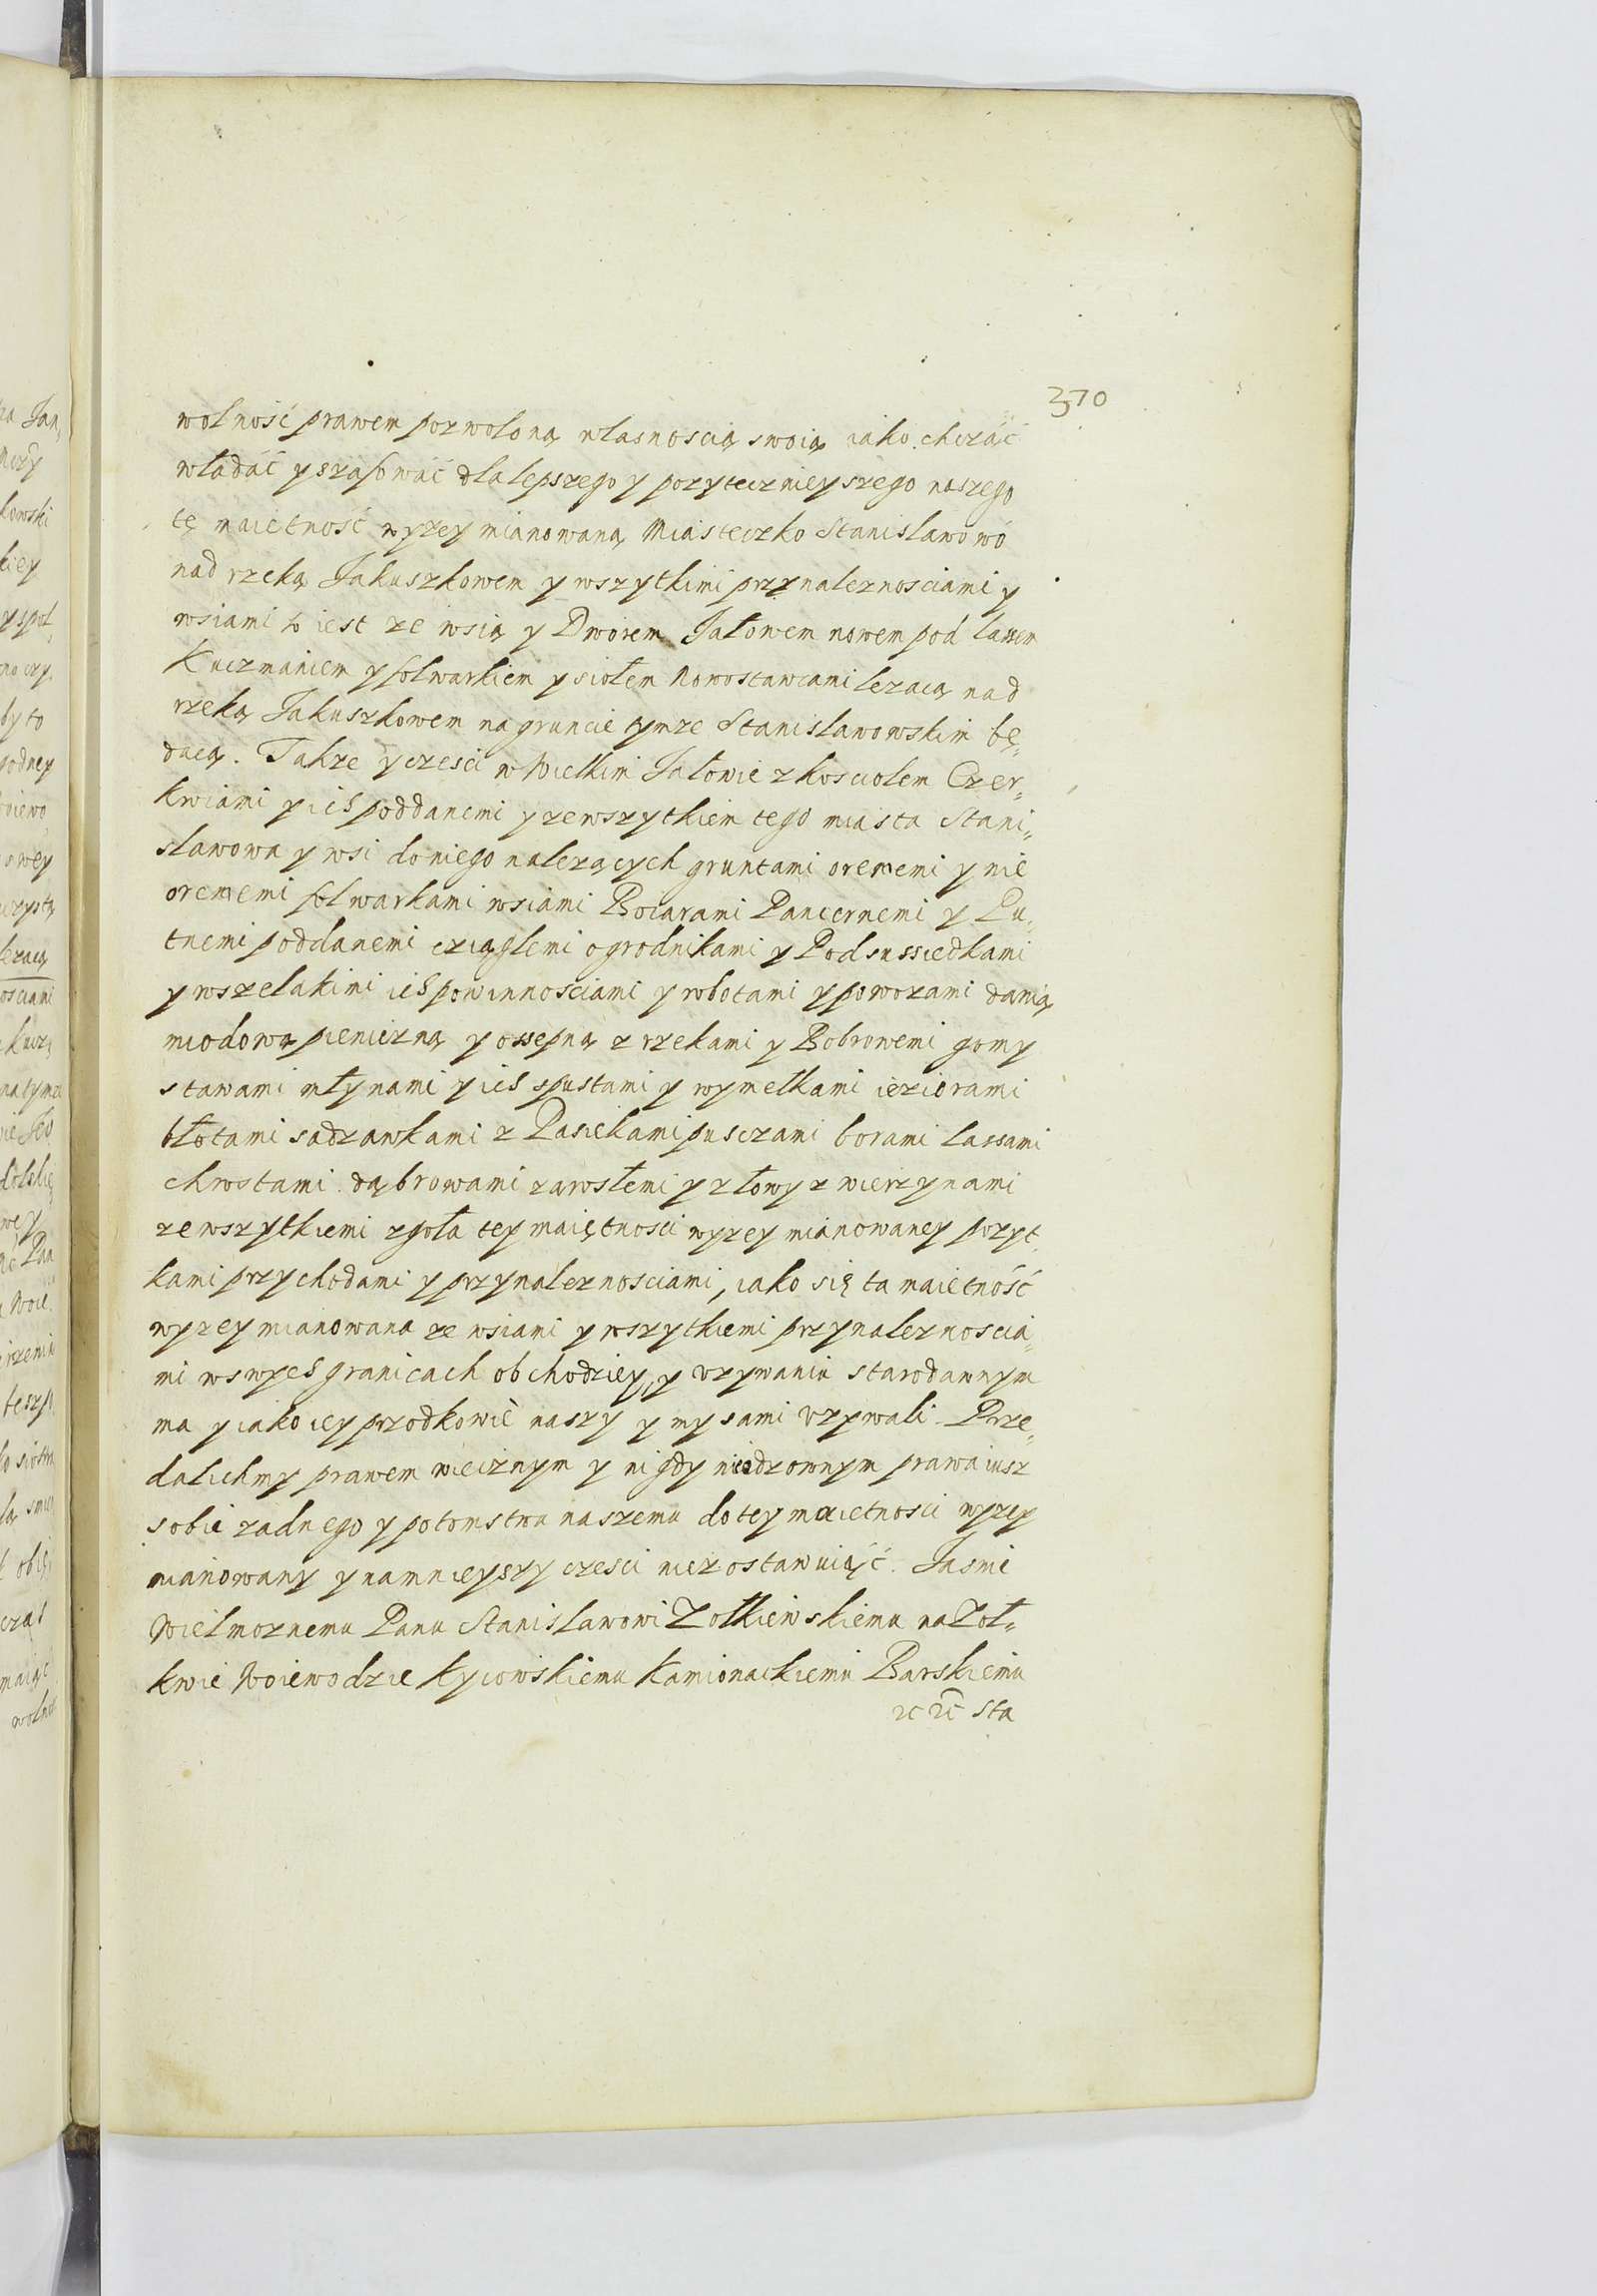 370
wolność prawem pozwoloną własnoscią swoią iako chcząc
władać y szafować dla lepszego y pozytecznieyszego naszego
tę maietność wyzey mianowaną Miasteczko Stanislawowo
nad rzeką Jakuszkowem y wszytkimi przynaleznosciami y
wsiami to iest ze wsią y Dworem Jałowem nowem pod lassem
Kuczmaniem y folwarkiem y siołem Nowostawcami lezacą nad
rzeką Jakuszkowem na gruncie tymze Stanislawowskim bę„
dacą. Takze y czesci w Wielkim Jałowie z kosciolem Czer„
kwiami y ich poddanemi y ze wszytkiem tego miasta Stani„
slawowa y wsi do niego nalezących gruntami oremem​i y nie
oremem​i folwarkami wsiami Boiarami Pancernemi y Pu„
tnemi poddanemi cziąglemi ogrodnikami y Podsussiedkami
y wszelakimi ich powinnosciami y robotami y powozami danią
miodową pieniezną y ossepną z rzekami y Bobrowemi gomy
stawami młynami y ich spustami y wymełkami ieziorami
błotami sadzawkami z Pasiekami pusczami borami lassami
chrostami dąbrowami zarosłemi y z łowy zwierzynami
ze wszytkiemi zgoła tey maiętnosci wyzey mianowaney pozyt„
kami przychodami y przynaleznosciami, iako się ta maietność
wyzey mianowana ze wsiami y wszytkiemi przynaleznoscia„
mi w swych granicach obchodziey y vzywaniu starodawnym
ma y iako iey przodkowie naszy y my sami vzywali. Prze„
dalichmy prawem wiecznym y nigdy niedzownym prawa iusz
sobie zadnego y potomstwu naszemu do tey maietnosci wyzey
mianowany y namnieyszy czesci nie zostawuiąć. Jasnie
Wielmoznemu Panu Stanislawowi Zołkiewskiemu na Zoł„
kwie Woiewodzie Kyiowskiemu Kamionackiemu Barskiemu
⁊c ⁊c sta